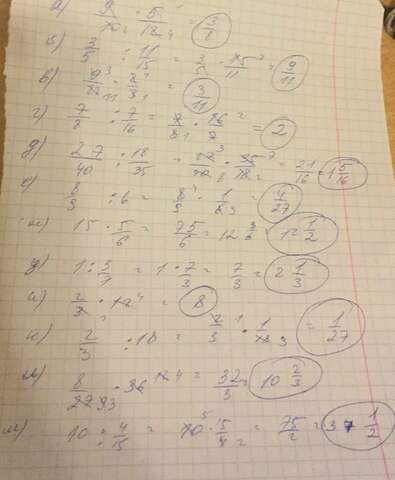 а) 9/10 · 5/12 = 3/8
б) 3/5 : 11/15 = 3/5 · 15/11 = 9/11
в) 9/22 · 2/3 = 3/11
г) 7/8 : 7/16 = 7/8 · 16/7 = 2
д) 27/40 : 18/35 = 27/40 · 35/18 = 21/16 = 1 5/16
е) 8/9 : 6 = 8/9 · 1/6 = 4/27
ж) 15 · 5/6 = 75/6 = 12 3/6 = 12 1/2
1 : 3/7 = 1 · 7/3 = 7/3 = 2 1/3
и) 2/3 · 12 = 8
к) 2/3 : 18 = 2/3 · 1/18 = 1/27
л) 8/27 · 36 = 32/3 = 10 2/3
м) 10 : 4/15 = 10 · 15/4 = 75/2 = 37 1/2